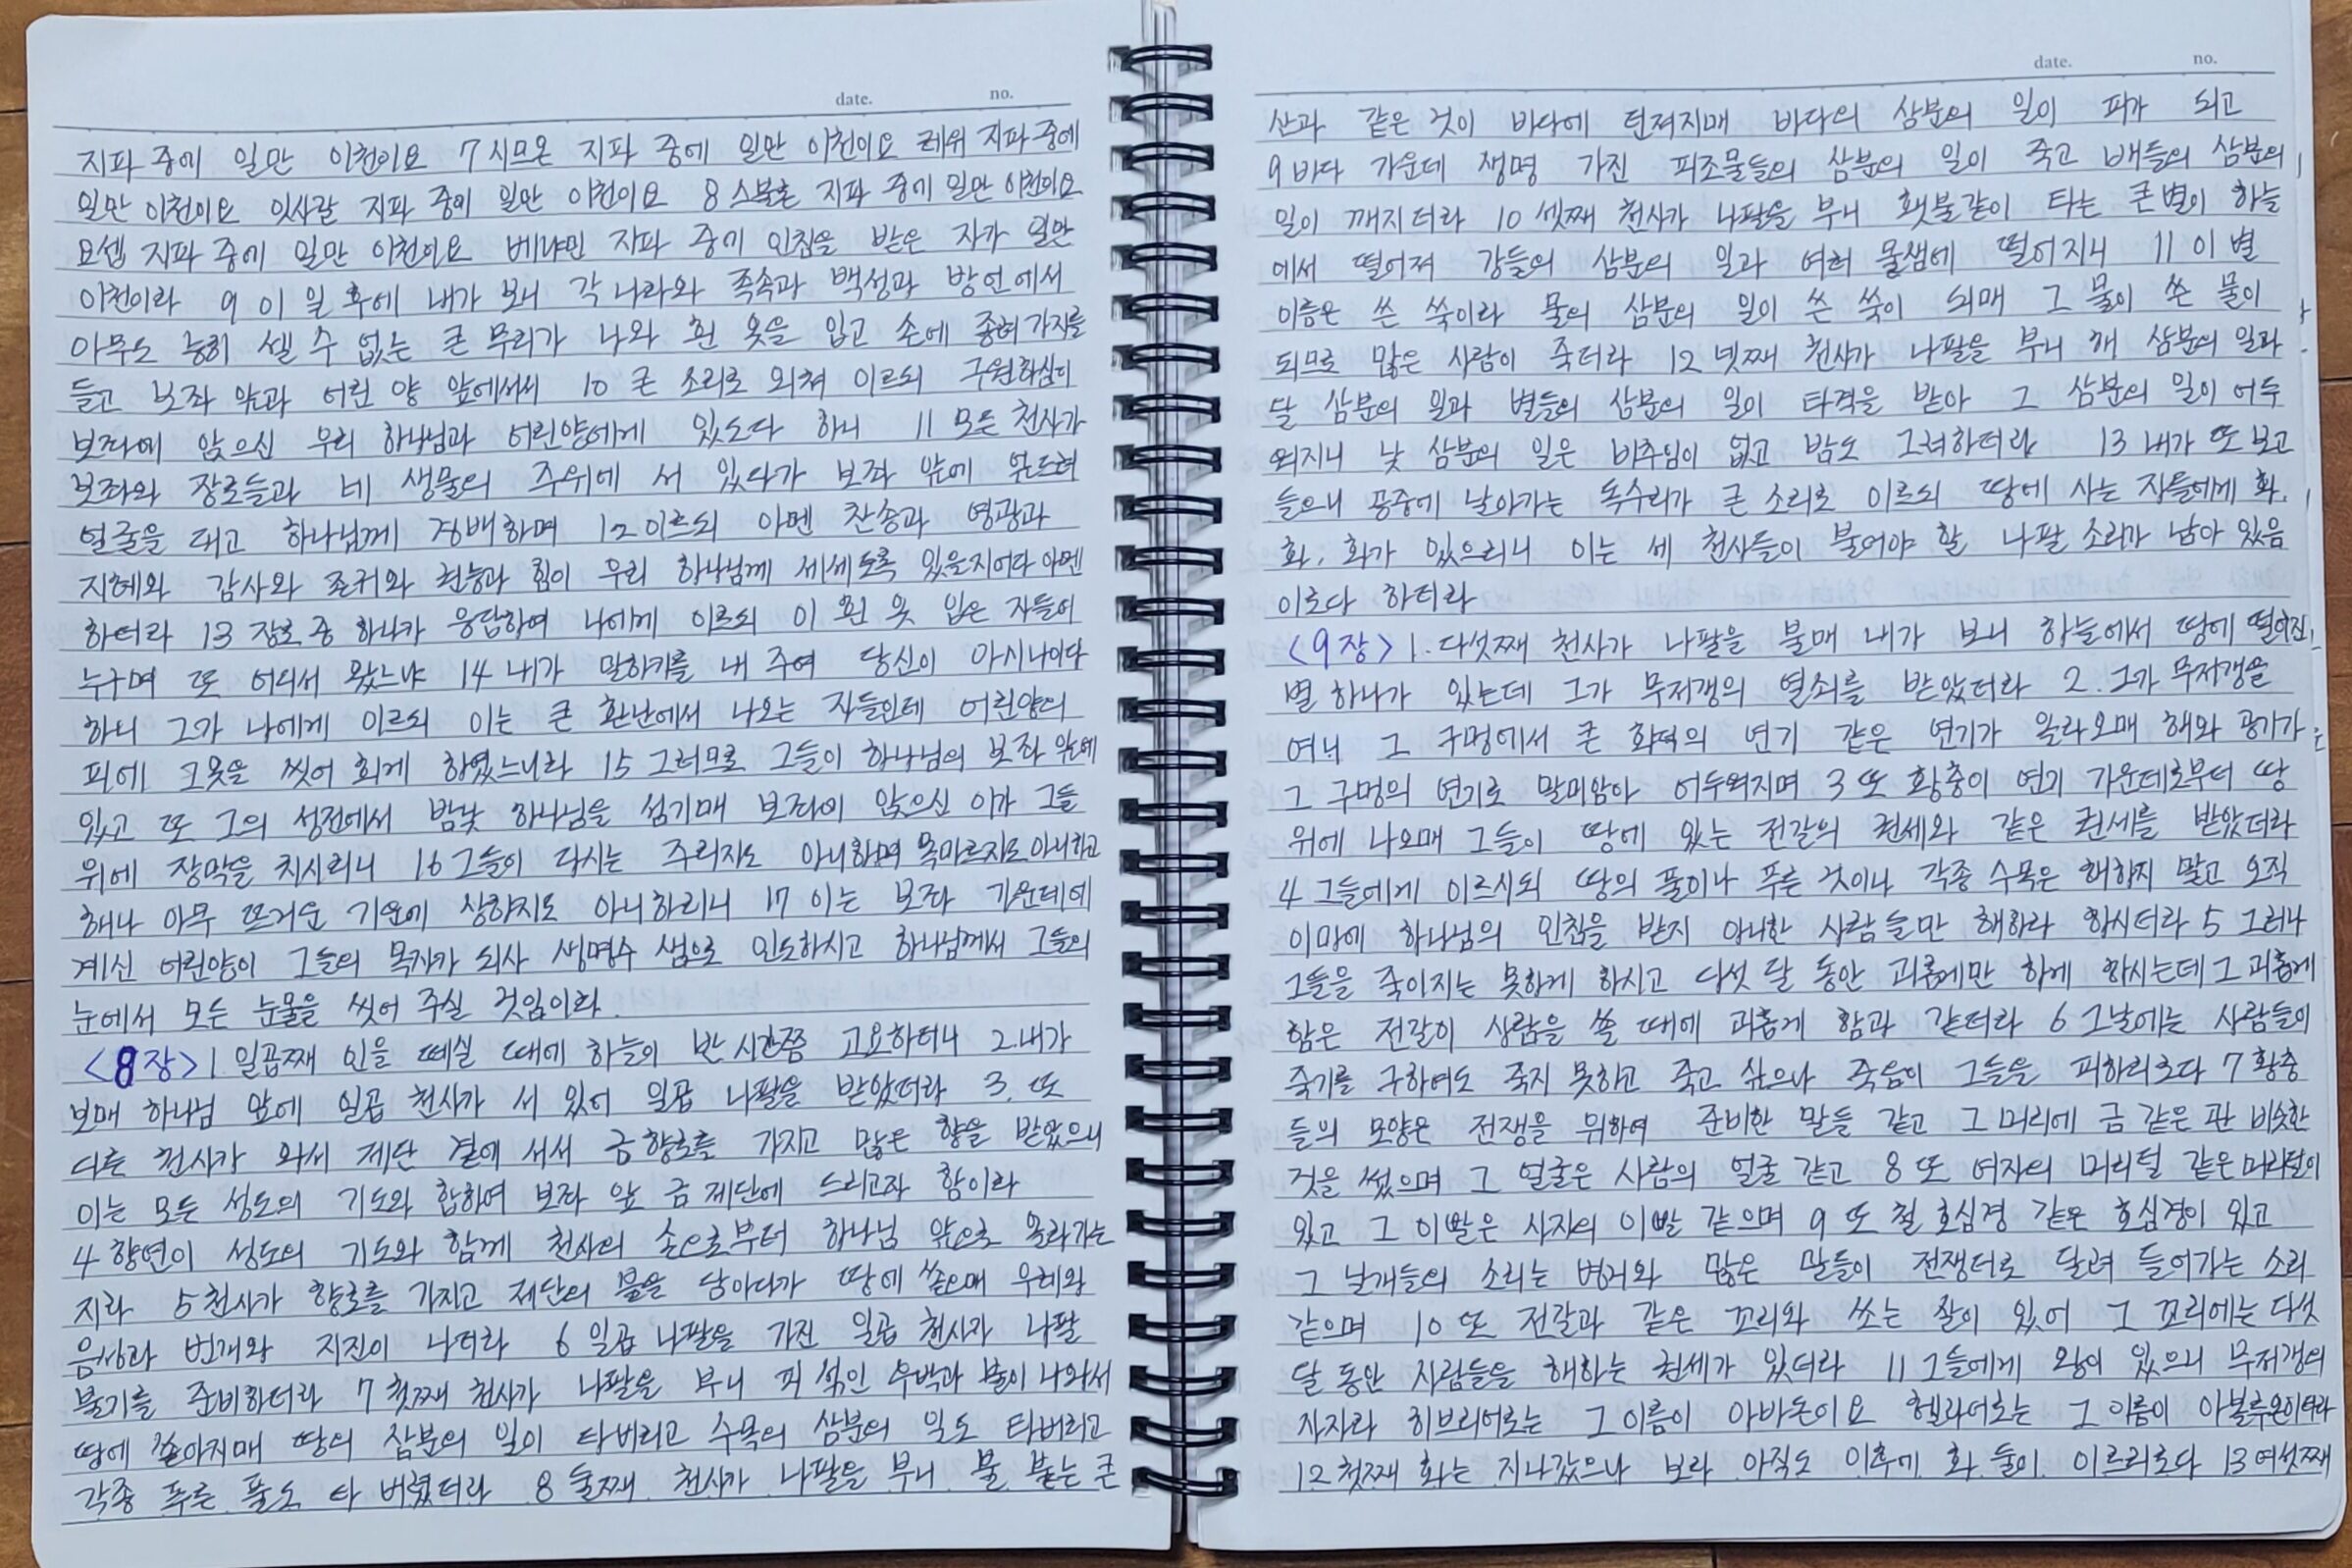 date. no.
지파 중에 일만 이천이요 7 시므온 지파 중에 일만 이천이요 레위 지파 중에
일만 이천이요 잇사갈 지파 중에 일만 이천이요 8 스불론 지파 중에 일만 이천이요
요셉 지파 중에 일만 이천이요 베냐민 지파 중에 인침을 받은 자가 일만
이천이라 9 이 일 후에 내가 보니 각 나라와 족속과 백성과 방언에서
아무도 능히 셀 수 없는 큰 무리가 나와 흰 옷을 입고 손에 종려 가지를
들고 보좌 앞과 어린 양 앞에서서 10 큰 소리로 외쳐 이르되 구원하심이
보좌에 앉으신 우리 하나님과 어린양에게 있도다 하니 11 모든 천사가
보좌와 장로들과 네 생물의 주위에 서 있다가 보좌 앞에 엎드려
얼굴을 대고 하나님께 경배하며 12 이르되 아멘 찬송과 영광과
지혜와 감사와 존귀와 권능과 힘이 우리 하나님께 세세토록 있을지어다 아멘
하더라 13 장로 중 하나가 응답하여 나에게 이르되 이 흰 옷 입은 자들이
누구며 또 어디서 왔느냐 14 내가 말하기를 내 주여 당신이 아시나이다
하니 그가 나에게 이르되 이는 큰 환난에서 나오는 자들인데 어린양의
피에 그 옷을 씻어 희게 하였느니라 15 그러므로 그들이 하나님의 보좌 앞에
있고 또 그의 성전에서 밤낮 하나님을 섬기매 보좌에 앉으신 이가 그들
위에 장막을 치시리니 16 그들이 다시는 주리지도 아니하며 목마르지도 아니하고
해나 아무 뜨거운 기운에 상하지도 아니하리니 17 이는 보좌 가운데에
계신 어린양이 그들의 목자가 되사 생명수 샘으로 인도하시고 하나님께서 그들의
눈에서 모든 눈물을 씻어 주실 것임이라
<8장> 1. 일곱째 인을 떼실 때에 하늘이 반 시간쯤 고요하더니 2. 내가
보매 하나님 앞에 일곱 천사가 서 있어 일곱 나팔을 받았더라 3. 또
다른 천사가 와서 제단 곁에 서서 금 향로를 가지고 많은 향을 받았으니
이는 모든 성도의 기도와 합하여 보좌 앞 금 제단에 드리고자 함이라
4 향연이 성도의 기도와 함께 천사의 손으로부터 하나님 앞으로 올라가는
지라 5 천사가 향로를 가지고 제단의 불을 담아다가 땅에 쏟으매 우레와
음성과 번개와 지진이 나더라 6 일곱 나팔을 가진 일곱 천사가 나팔
불기를 준비하더라 7 첫째 천사가 나팔을 부니 피 섞인 우박과 불이 나와서
땅에 쏟아지매 땅의 삼분의 일이 타버리고 수목의 삼분의 일도 타버리고
각종 푸른 풀도 타 버렸더라 8 둘째 천사가 나팔을 부니 불 붙는 큰
date. no.
산과 같은 것이 바다에 던져지매 바다의 삼분의 일이 피가 되고
9 바다 가운데 생명 가진 피조물들의 삼분의 일이 죽고 배들의 삼분의
일이 깨지더라 10 셋째 천사가 나팔을 부니 횃불같이 타는 큰 별이 하늘
에서 떨어져 강들의 삼분의 일과 여러 물샘에 떨어지니 11 이 별
이름은 쓴 쑥이라 물의 삼분의 일이 쓴 쑥이 되매 그 물이 쓴 물이
되므로 많은 사람이 죽더라 12 넷째 천사가 나팔을 부니 해 삼분의 일과
달 삼분의 일과 별들의 삼분의 일이 타격을 받아 그 삼분의 일이 어두
워지니 낮 삼분의 일은 비추임이 없고 밤도 그러하더라 13 내가 또 보고
들으니 공중에 날아가는 독수리가 큰 소리로 이르되 땅에 사는 자들에게 화,
화, 화가 있으리니 이는 세 천사들이 불어야 할 나팔 소리가 남아 있음
이로다 하더라
<9장> 1. 다섯째 천사가 나팔을 불매 내가 보니 하늘에서 땅에 떨어진
별 하나가 있는데 그가 무저갱의 열쇠를 받았더라 2. 그가 무저갱을
여니 그 구멍에서 큰 화덕의 연기 같은 연기가 올라오매 해와 공기가
그 구멍의 연기로 말미암아 어두워지며 3 또 황충이 연기 가운데로부터 땅
위에 나오매 그들이 땅에 있는 전갈의 권세와 같은 권세를 받았더라
4 그들에게 이르시되 땅의 풀이나 푸른 것이나 각종 수목은 해하지 말고 오직
이마에 하나님의 인침을 받지 아니한 사람들만 해하라 하시더라 5 그러나
그들을 죽이지는 못하게 하시고 다섯 달 동안 괴롭게만 하게 하시는데 그 괴롭게
함은 전갈이 사람을 쏠 때에 괴롭게 함과 같더라 6 그날에는 사람들이
죽기를 구하여도 죽지 못하고 죽고 싶으나 죽음이 그들을 피하리로다 7 황충
들의 모양은 전쟁을 위하여 준비한 말들 같고 그 머리에 금 같은 관 비슷한
것을 썼으며 그 얼굴은 사람의 얼굴 같고 8 또 여자의 머리털 같은 머리털이
있고 그 이빨은 사자의 이빨 같으며 9 또 철 호심경 같은 호심경이 있고
그 날개들의 소리는 병거와 많은 말들이 전쟁터로 달려 들어가는 소리
같으며 10 또 전갈과 같은 꼬리와 쏘는 살이 있어 그 꼬리에는 다섯
달 동안 사람들을 해하는 권세가 있더라 11 그들에게 왕이 있으니 무저갱의
사자라 히브리어로는 그 이름이 아바돈이요 헬라어로는 그 이름이 아볼루온이더라
12 첫째 화는 지나갔으나 보라 아직도 이후에 화 둘이 이르리로다 13 여섯째